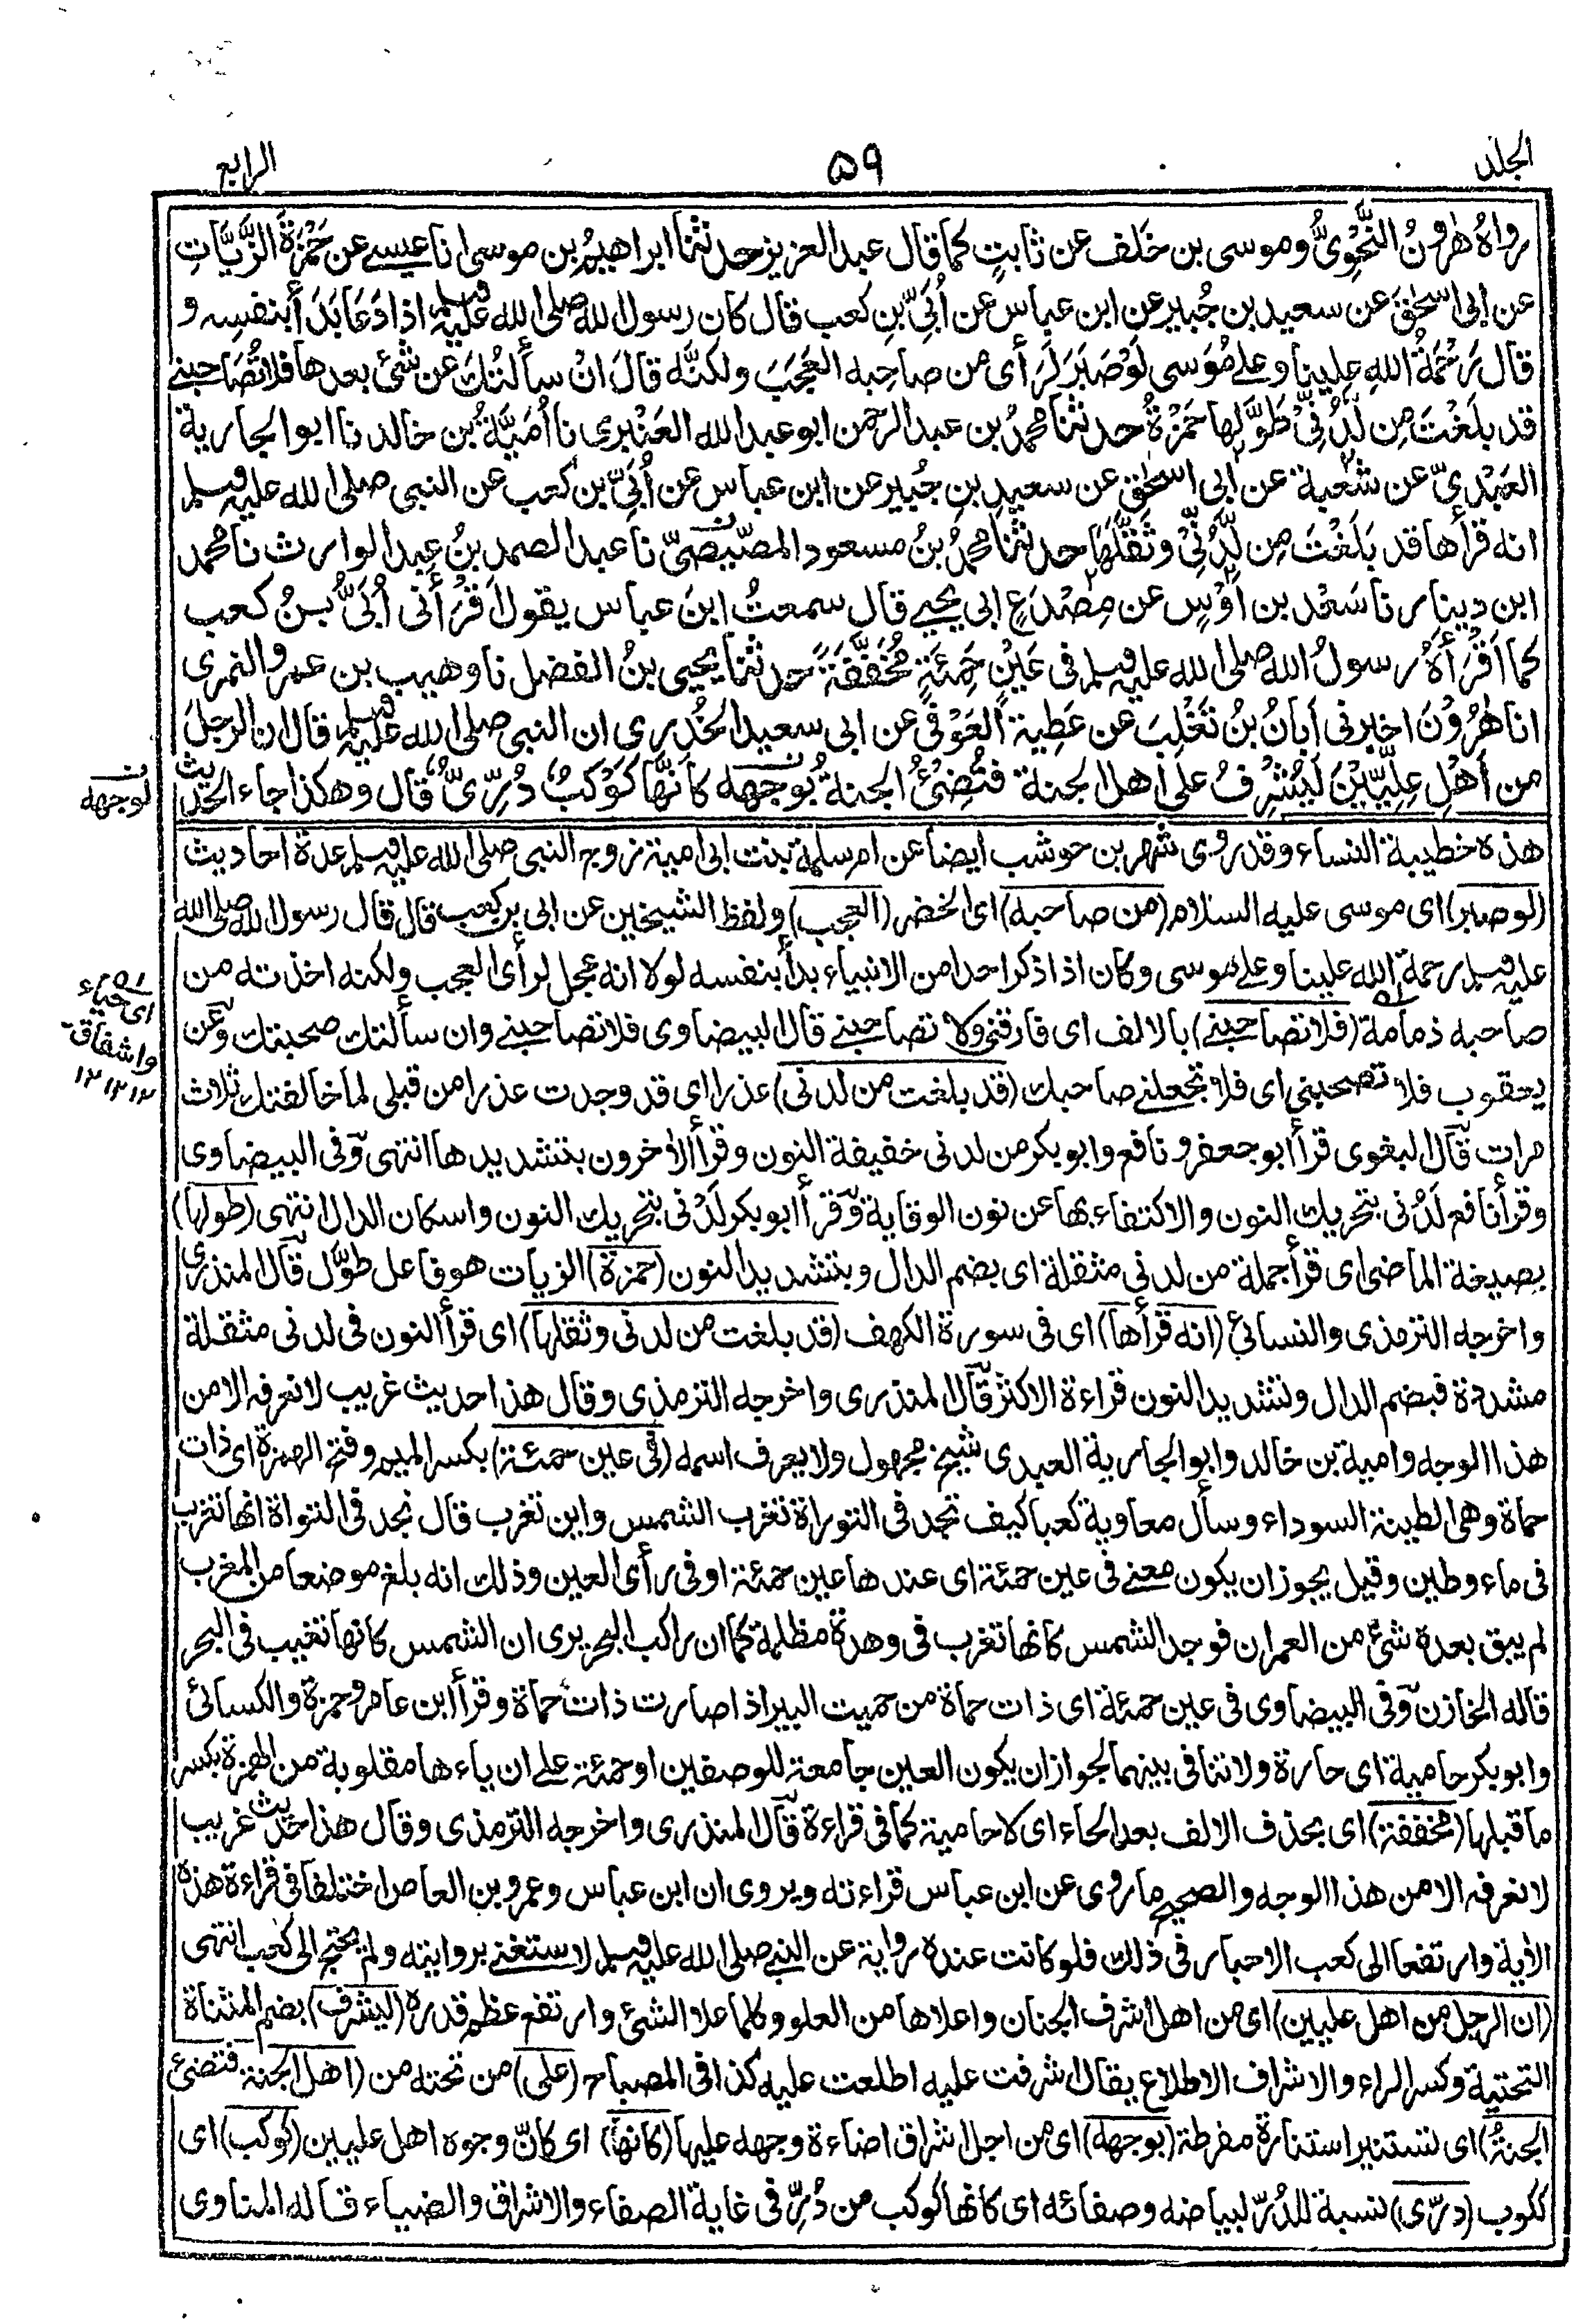 الجلد
٥٩
الرابع
رواهُ هٰرونُ النَّحْوِىُّ وموسى بن خَلف عن ثابتٍ كما قال عبد العزيز حدثنا ابراهيمُ بن موسى انا عيسے عن حَمْزَةَ الزَّيَّاتِ
عن ابى اسحٰقَ عن سعيد بن جُبير عن ابن عباس عن أُبَىِّ بنِ كعب قال كان رسول الله صلى الله عليه وسلم اذا دَعَا بَدَأَ بنفسِه و
قال رَحْمَةُ اللهِ علينا وعلے مُوسى لَوْ صَبَرَ لَرَأى من صاحِبه العَجَبَ ولكنَّه قالَ انْ سألتُكَ عن شئ بعدها فلا تُصَاحبنے
قد بلَغْتَ مِن لَّدُنِّىْ طَوَّلَها حَمْزَةُ حدثنا محمدُ بن عبد الرحمن ابو عبد الله العَنْبرى نا أُمَيَّةُ بن خالد نا ابو الجارية
العَبْدِىّ عن شُعْبة عن ابى اسحٰق عن سعيدِ بنِ جُبير عن ابن عباس عن أُبَىِّ بن كعب عن النبى صلى الله عليه وسلم
انه قرأها قد بَلَغْتَ مِن لَّدُنِّىْ وثَقَّلَها حدثنا محمدُ بنُ مسعود المصّيصىّ نا عبد الصمد بنُ عبد الوارث نا محمد
ابن دينار نا سَعْد بن اَوْسٍ عن مِصْدَعٍ ابى يحيے قال سمعتُ ابنَ عباس يقول اَقْرَأَنى أُبَىُّ بنُ كعب
كما اَقْرَأَهُ رسولُ الله صلى الله عليه وسلم فى عَيْنٍ حَمِئَةٍ مُخَفَّفَةً حدثنا يحيى بنُ الفضل نا وهيب بن عمرو النمرى
انا هٰرُوْنَ اخبرنى اَبَانُ بنُ تَغْلِبَ عن عَطِية العَوْفىِّ عن ابى سعيد الخُدرى ان النبى صلى الله عليه وسلم قال ان الرجلَ
من اَهْلِ عِلِّيِّيْنَ لَيُشْرِفُ على اهل الجنة فتُضِئُ الجنةُ بوجهه كانَّها كَوْكَبٌ دُرِّىٌّ قال وهكذا جاء الحديث
لوجهه
هذه خطيبة النساء وقد روى شهر بن حوشب ايضا عن ام سلمة بنت ابى امية زوج النبى صلى الله عليه وسلم عدة احاديث
(لو صبر) اى موسى عليه السلام (من صاحبه) اى الخضر (العجب) ولفظ الشيخين عن ابى بن كعب قال قال رسول الله صلى الله
عليه وسلم رحمة الله علينا وعلے موسى وكان اذا ذكر احدا من الانبياء بدأ بنفسه لولا انه عجل لرأى العجب ولكنه اخذته من
صاحبه ذمامة (فلا تصاحبنے) بالالف اى فارقنى ولا تصاحبنے قال البيضاوى فلا تصاحبنے وان سألتك صحبتك وعن
اى حياء
واشفاق
١٢ ١٢ ١٢
يعقوب فلا تصحبنى اى فلا تجعلنے صاحبك (قد بلغت من لدنى) عذرا اى قد وجدت عذرا من قبلى لما خالفتك ثلاث
مرات قال البغوى قرأ ابو جعفر ونافع وابو بكر من لدنى خفيفة النون وقرأ الأخرون بتشديدها انتهى وفى البيضاوى
وقرأ نافع لَدُنى بتحريك النون والاكتفاء بها عن نون الوقاية وقرأ ابو بكر لَدْنى بتحريك النون واسكان الدال انتهى (طولها)
بصيغة الماضى اى قرأ جملة من لدنى مثقلة اى بضم الدال وبتشديد النون (حمزة) الزيات هو فاعل طوّل قال المنذرى
واخرجه الترمذى والنسائى (انه قرأها) اى فى سورة الكهف (قد بلغت من لدنى وثقلها) اى قرأ النون فى لدنى مثقلة
مشددة فبضم الدال وتشديد النون قراءة الاكثر قال المنذرى واخرجه الترمذى وقال هذا حديث غريب لا نعرفه الا من
هذا الوجه وامية بن خالد وابو الجارية العبدى شيخ مجهول ولا يعرف اسمه (فى عين حمئة) بكسر الميم وفتح الهمزة اى ذات
حماة وهى الطينة السوداء وسأل معاوية كعبا كيف تجد فى التوراة تغرب الشمس واين تغرب قال نجد فى التوراة انها تغرب
فى ماء وطين وقيل يجوز ان يكون معنے فى عين حمئة اى عندها عين حمئة او فى رأى العين وذلك انه بلغ موضعا من المغرب
لم يبق بعده شئ من العمران فوجد الشمس كانها تغرب فى وهدة مظلمة كما ان راكب البحر يرى ان الشمس كانها تغيب فى البحر
قاله الخازن وفى البيضاوى فى عين حمئة اى ذات حماة من حميت البير اذا صارت ذات حماة وقرأ ابن عامر وحمزة والكسائى
وابو بكر حامية اى حارة ولا تنافى بينهما لجواز ان يكون العين جامعة للوصفين او حمئة علے ان ياءها مقلوبة من الهمزة بكسر
ما قبلها (مخففة) اى بحذف الالف بعد الحاء اى لا حامية كما فى قراءة قال المنذرى واخرجه الترمذى وقال هذا حديث غريب
لا نعرفه الا من هذا الوجه والصحيح ما روى عن ابن عباس قراءته ويروى ان ابن عباس وعمرو بن العاص اختلفا فى قراءة هذه
الأية وارتفعا الى كعب الاحبار فى ذلك فلو كانت عنده رواية عن النبے صلى الله عليه وسلم لاستغنے بروايته ولم يحتج الى كعب انتهى
(ان الرجل من اهل عليين) اى من اهل اشرف الجنان واعلاها من العلو وكلما علا الشئ وارتفع عظم قدره (ليشرف) بضم المثناة
التحتية وكسر الراء والاشراف الاطلاع يقال اشرفت عليه اطلعت عليه كذا فى المصباح (على) من تحته من (اهل الجنة فتضئ
الجنةُ) اى تستنير استنارة مفرطة (بوجهه) اى من اجل اشراق اضاءة وجهه عليها (كانها) اى كانّ وجوه اهل عليين (كوكب) اى
ككوب (درّى) نسبة للدُرّ لبياضه وصفائه اى كانها كوكب من دُرِّ فى غاية الصفاء والاشراق والضياء قاله المناوى